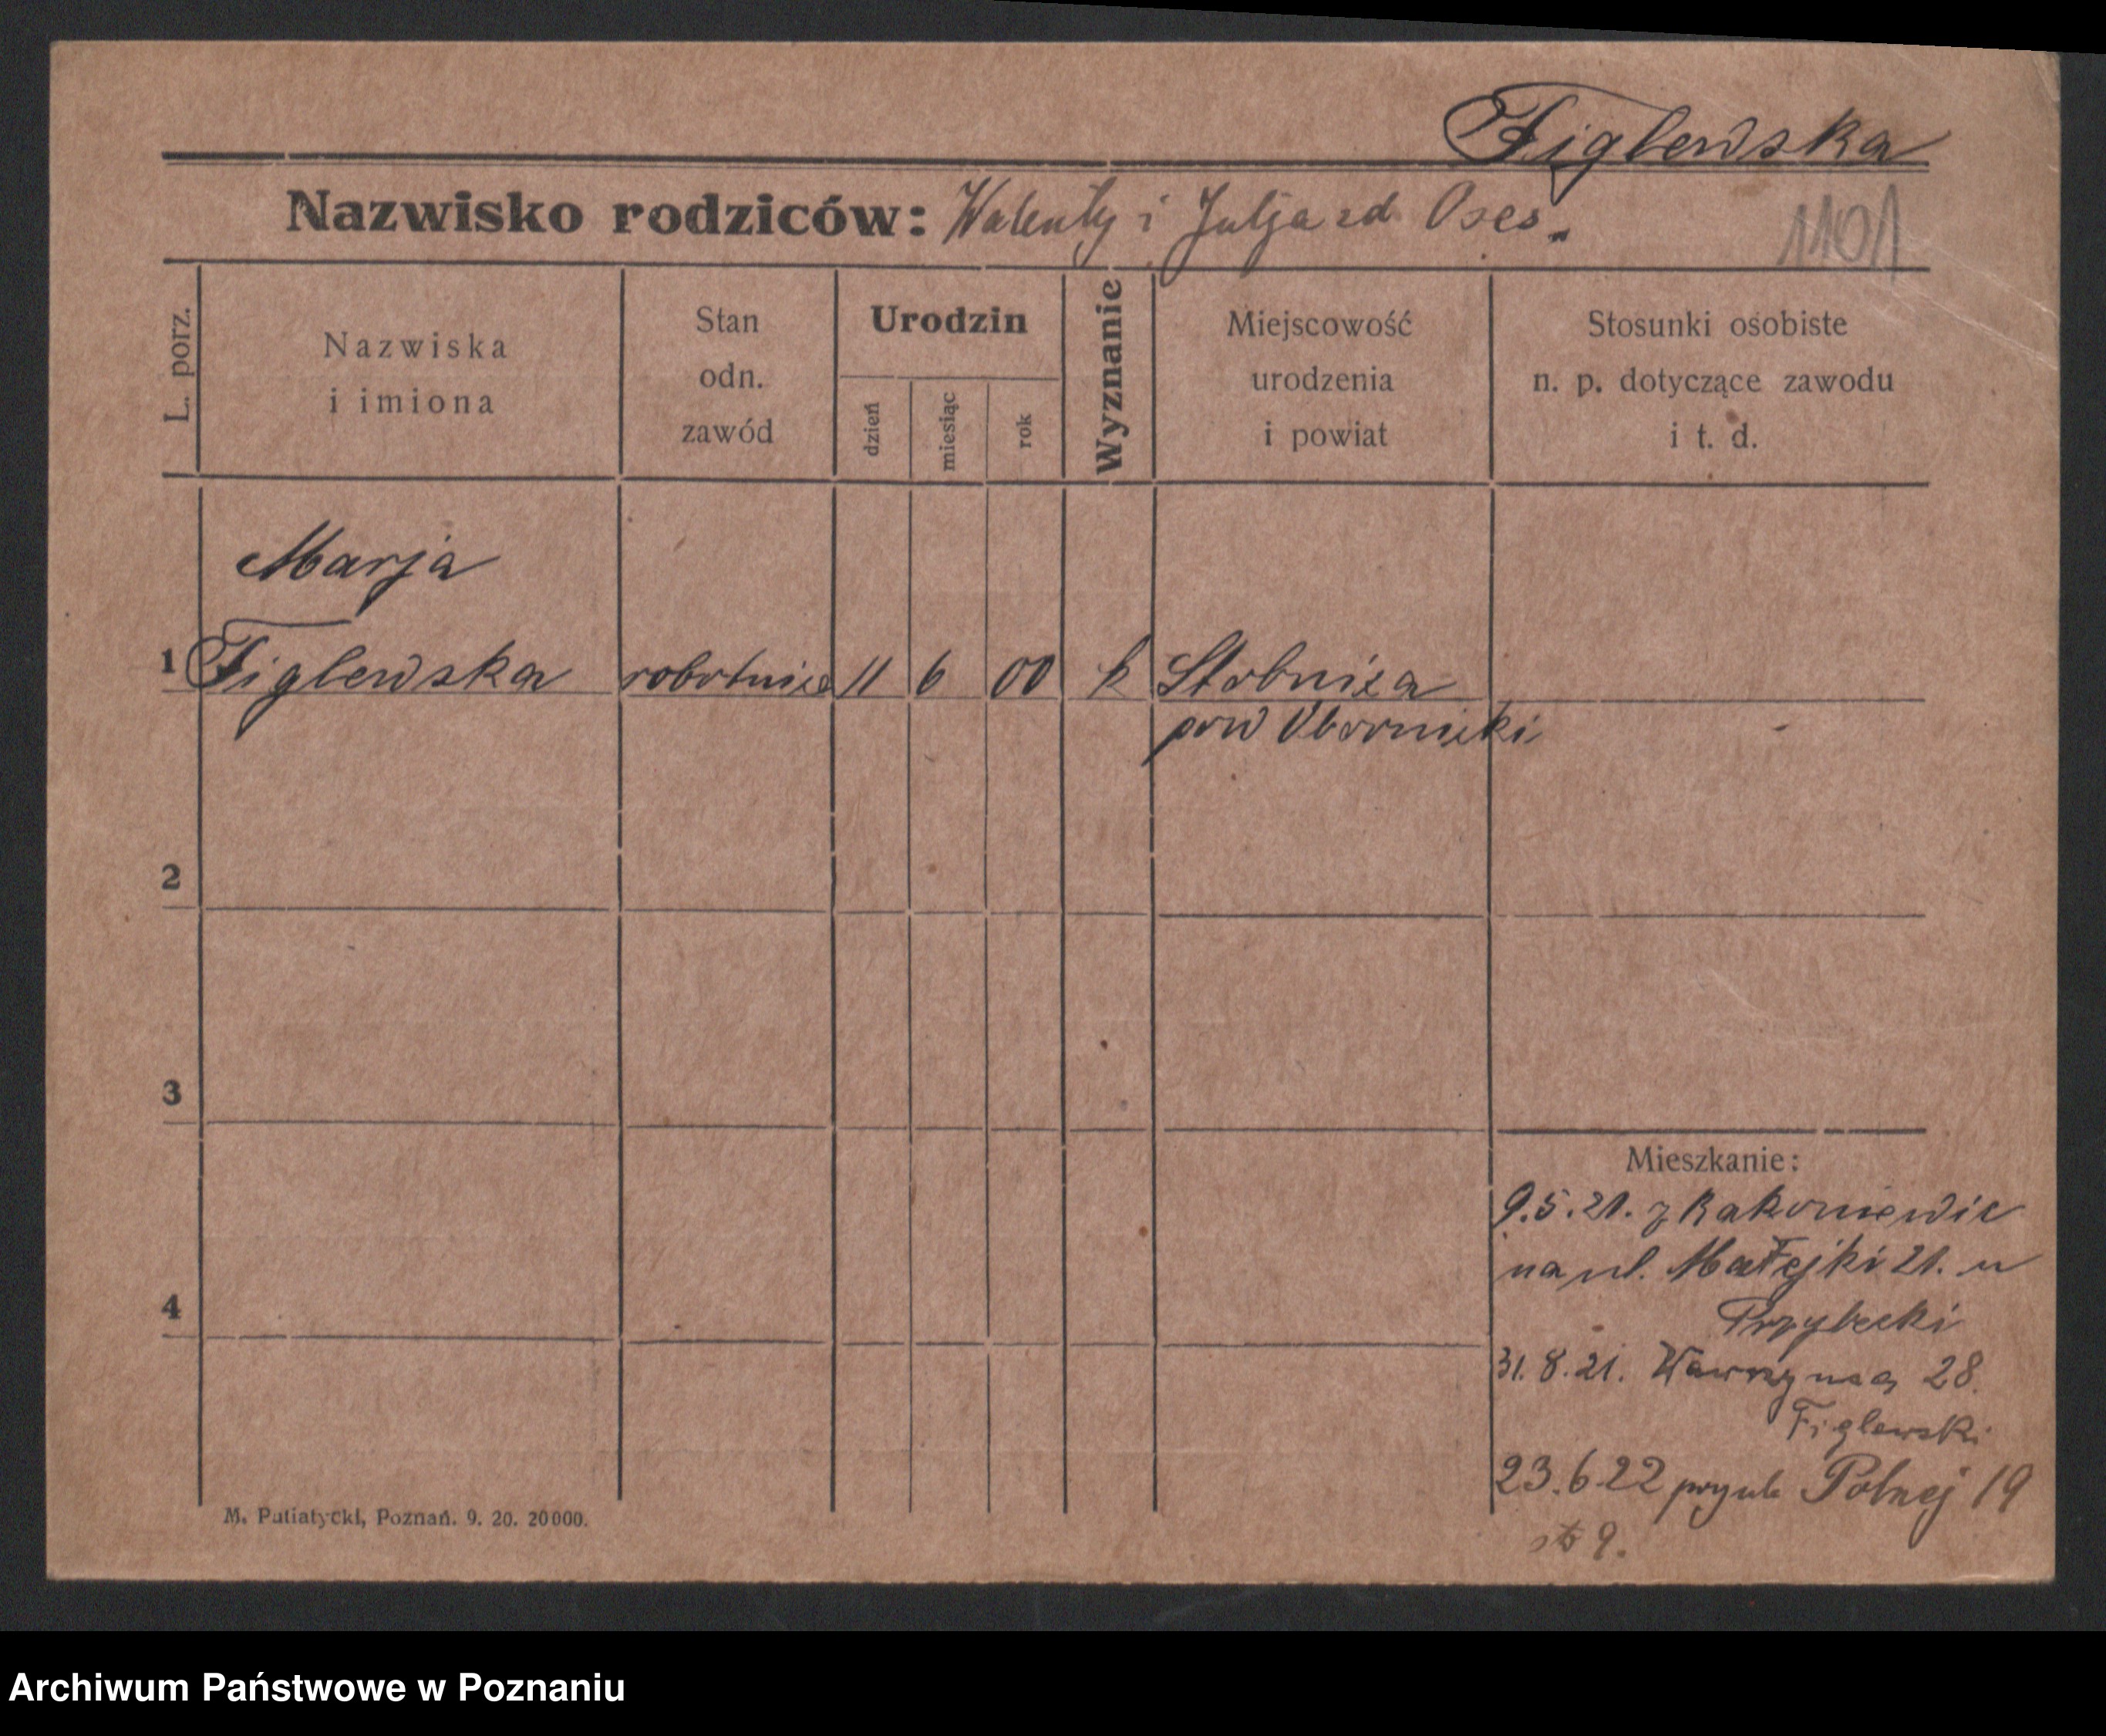 Figlewska
Nazwisko rodziców: Walenty i Julja zd. Oses.
1101
L. porz.
Nazwiska
i imiona
Stan
odn.
zawód
Urodzin
dzień
miesiąc
rok
Wyznanie
Miejscowość
urodzenia
i powiat
Stosunki osobiste
n. p. dotyczące zawodu
i t. d.
Marja
1 Figlewska robotnica 11 6 00 k Stobnica
pow Oborniki
2
3
4
Mieszkanie:
9.5.21. z Rakoniewic
na ul. Matejki 21. u
Przybecki
31. 8. 21. Wawrzynca 28.
Figlewski
23.6.22 przy ul. Polnej 19
9.
M. Putiatycki, Poznań. 9. 20. 20000.
Archiwum Państwowe w Poznaniu